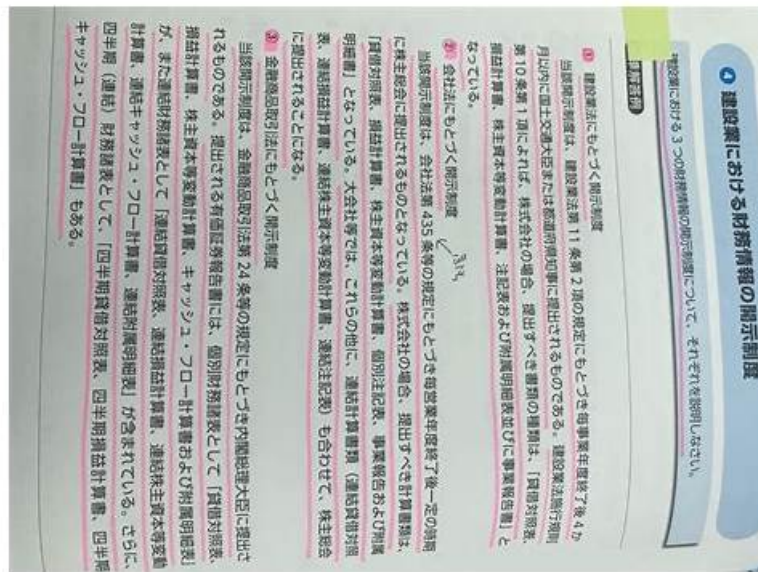 ④ 建設業における財務情報の開示制度
建設業における3つの財務情報の開示制度について、それぞれを説明しなさい。
① 建設業法にもとづく開示制度
当該開示制度は、建設業法第11条第2項の規定にもとづき毎事業年度終了後4か
月以内に国土交通大臣または都道府県知事に提出されるものである。建設業法施行規則
第10条第1項によれば、株式会社の場合、提出すべき書類の種類は、「貸借対照表、
損益計算書、株主資本等変動計算書、注記表および附属明細表並びに事業報告書」と
なっている。
② 会社法にもとづく開示制度
当該開示制度は、会社法第435条等の規定にもとづき毎営業年度終了後一定の時期
に株主総会に提出されるものとなっている。株式会社の場合、提出すべき計算書類は、
「貸借対照表、損益計算書、株主資本等変動計算書、個別注記表、事業報告および附属
明細書」となっている。大会社等では、これらの他に、連結計算書類（連結貸借対照
表、連結損益計算書、連結株主資本等変動計算書、連結注記表）も合わせて、株主総会
に提出されることになる。
③ 金融商品取引法にもとづく開示制度
当該開示制度は、金融商品取引法第24条等の規定にもとづき内閣総理大臣に提出さ
れるものである。提出される有価証券報告書には、個別財務諸表として「貸借対照表、
損益計算書、株主資本等変動計算書、キャッシュ・フロー計算書および附属明細表」
が、また連結財務諸表として「連結貸借対照表、連結損益計算書、連結株主資本等変動
計算書、連結キャッシュ・フロー計算書、連結附属明細表」が含まれている。さらに、
四半期（連結）財務諸表として、「四半期貸借対照表、四半期損益計算書、四半期
キャッシュ・フロー計算書」もある。